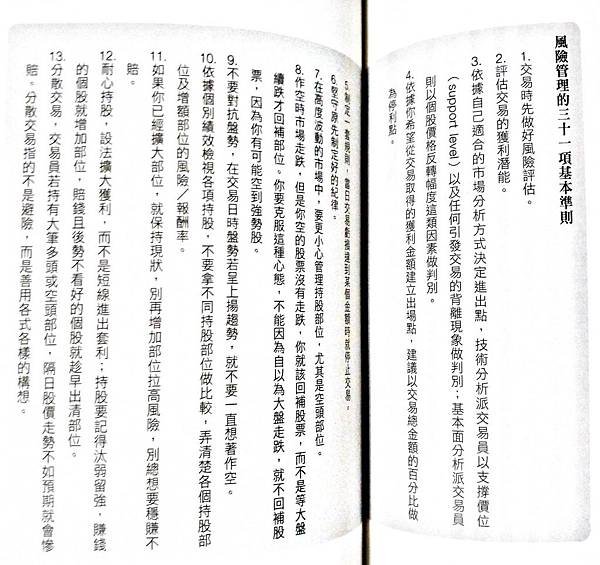 風險管理的三十一項基本準則
1.交易時先做好風險評估。
2.評估交易的獲利潛能。
3.依據自己適合的市場分析方式決定進出點，技術分析派交易員以支撐價位
（support level）以及任何引發交易的背離現象做判別；基本面分析派交易員
則以個股價格反轉幅度這類因素做判別。
4.依據你希望從交易取得的獲利金額建立出場點，建議以交易總金額的百分比做
為停利點。
5.制定一套規則，當日交易虧損達到某個金額時就停止交易。
6.堅守原先制定好的紀律。
7.在高度波動的市場中，要更小心管理持股部位，尤其是空頭部位。
8.作空時市場走跌，但是你空的股票沒有走跌，你就該回補股票，而不是等大盤
續跌才回補部位。你要克服這種心態，不能因為自以為大盤走跌，就不回補股
票，因為你有可能空到強勢股。
9.不要對抗盤勢，在交易日時盤勢若呈上揚趨勢，就不要一直想著作空。
10.依據個別績效檢視各項持股，不要拿不同持股部位做比較，弄清楚各個持股部
位及增額部位的風險／報酬率。
11.如果你已經擴大部位，就保持現狀，別再增加部位拉高風險，別總想要穩賺不
賠。
12.耐心持股，設法擴大獲利，而不是短線進出套利；持股要記得汰弱留強，賺錢
的個股就增加部位，賠錢且後勢不看好的個股就趁早出清部位。
13.分散交易，交易員若持有大筆多頭或空頭部位，隔日股價走勢不如預期就會慘
賠。分散交易指的不是避險，而是善用各式各樣的構想。